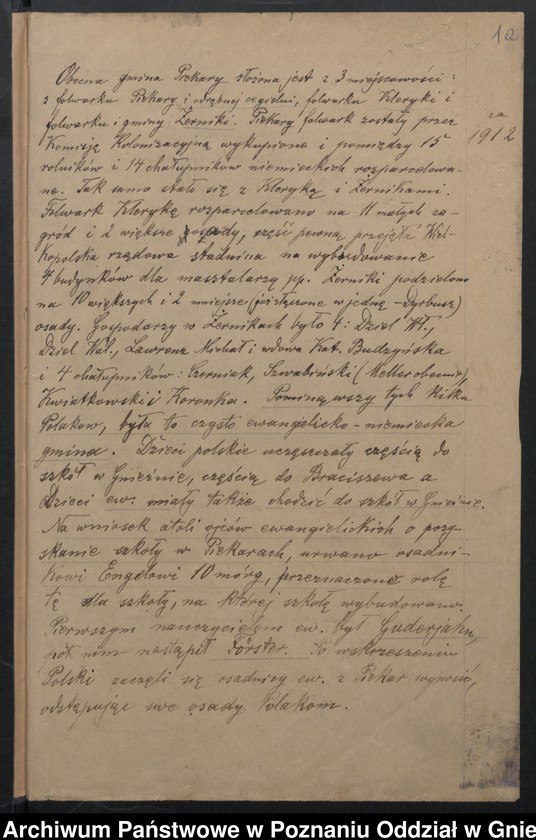 1a
Obecna gmina Piekary złożona jest z 3 miejscowości:
z folwarku Piekary i odrębnej cegielni, folwarku Kleryki i
folwarku i gminy Żerniki. Piekary folwark zostały przez
za
1912
Komisję Kolonizacyjną wykupione i pomiędzy 15
rolników i 14 chałupników niemieckich rozparcelowa-
ne. Tak samo stało się z Kleryką i Żernikami.
Folwark Klerykę rozparcelowano na 11 małych za-
gród i 2 większe osady, część pewną przejęła Wiel-
kopolska rządowa stadnina na wybudowanie
4 budynków dla masztalarzy pp. Żerniki podzielono
na 10 większych i 2 mniejsze (złączone w jedną - Dyrbusz)
osady. Gospodarzy w Żernikach było 4: Dziel Wł.,
Dziel Wal., Lawrenz Michał i wdowa Kat. Budzyńska
i 4 chałupników: Czerniak, Szwabiński (Meller obecnie),
Kwiatkowski i Koronka. Pominąwszy tych kilku
Polaków, była to czysto ewangielicko-niemiecka
gmina. Dzieci polskie uczęszczały częścią do
szkół w Gnieźnie, częścią do Braciszewa a
Dzieci ew. miały także chodzić do szkół w Gnieźnie.
Na wniosek atoli ojców ewangielickich o pozy-
skanie szkoły w Piekarach, urwano osadni-
kowi Engelowi 10 mórg, przeznaczono rolę
tę dla szkoły, na której szkołę wybudowano.
Pierwszym nauczycielem ew. był Guderjahn,
po nim nastąpił Förster. Po wskrzeszeniu
Polski zaczęli się osadnicy ew. z Piekar wynosić,
odstępując swe osady Polakom.
Archiwum Państwowe w Poznaniu Oddział w Gnie